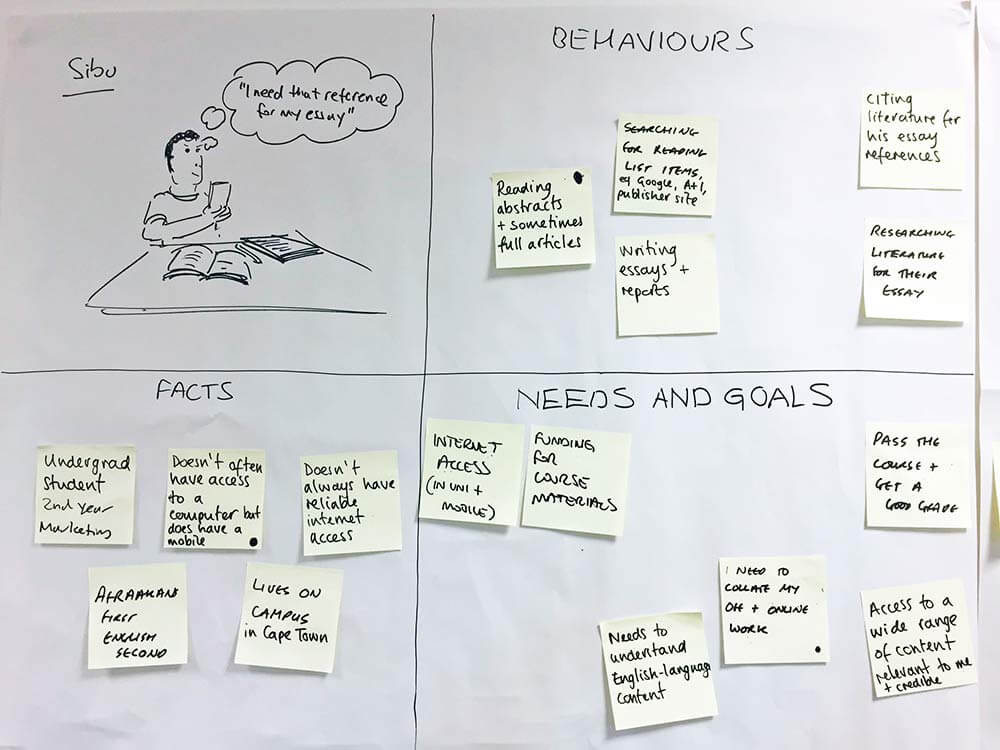 Sibu
"I need that reference
for my essay"
BEHAVIOURS
Reading
abstracts
+ sometimes
full articles
SEARCHING
FOR READING
LIST ITEMS,
eg Google, A+I,
publisher site
Writing
essays +
reports
Citing
literature for
his essay
references
RESEARCHING
LITERATURE
FOR THEIR
ESSAY
FACTS
Undergrad
student
2nd year
Marketing
Doesn't often
have access
to a
computer but
does have a
mobile
Doesn't
always have
reliable
internet
access
AFRAAKANS
FIRST
ENGLISH
SECOND
LIVES ON
CAMPUS
in Cape Town
NEEDS AND GOALS
INTERNET
ACCESS
(IN UNI +
MOBILE)
FUNDING
FOR
COURSE
MATERIALS
PASS THE
COURSE +
GET A
GOOD GRADE
Needs to
understand
English-language
content
I NEED TO
COLLATE MY
OFF + ONLINE
WORK
Access to a
wide range
of content
relevant to me
+ credible